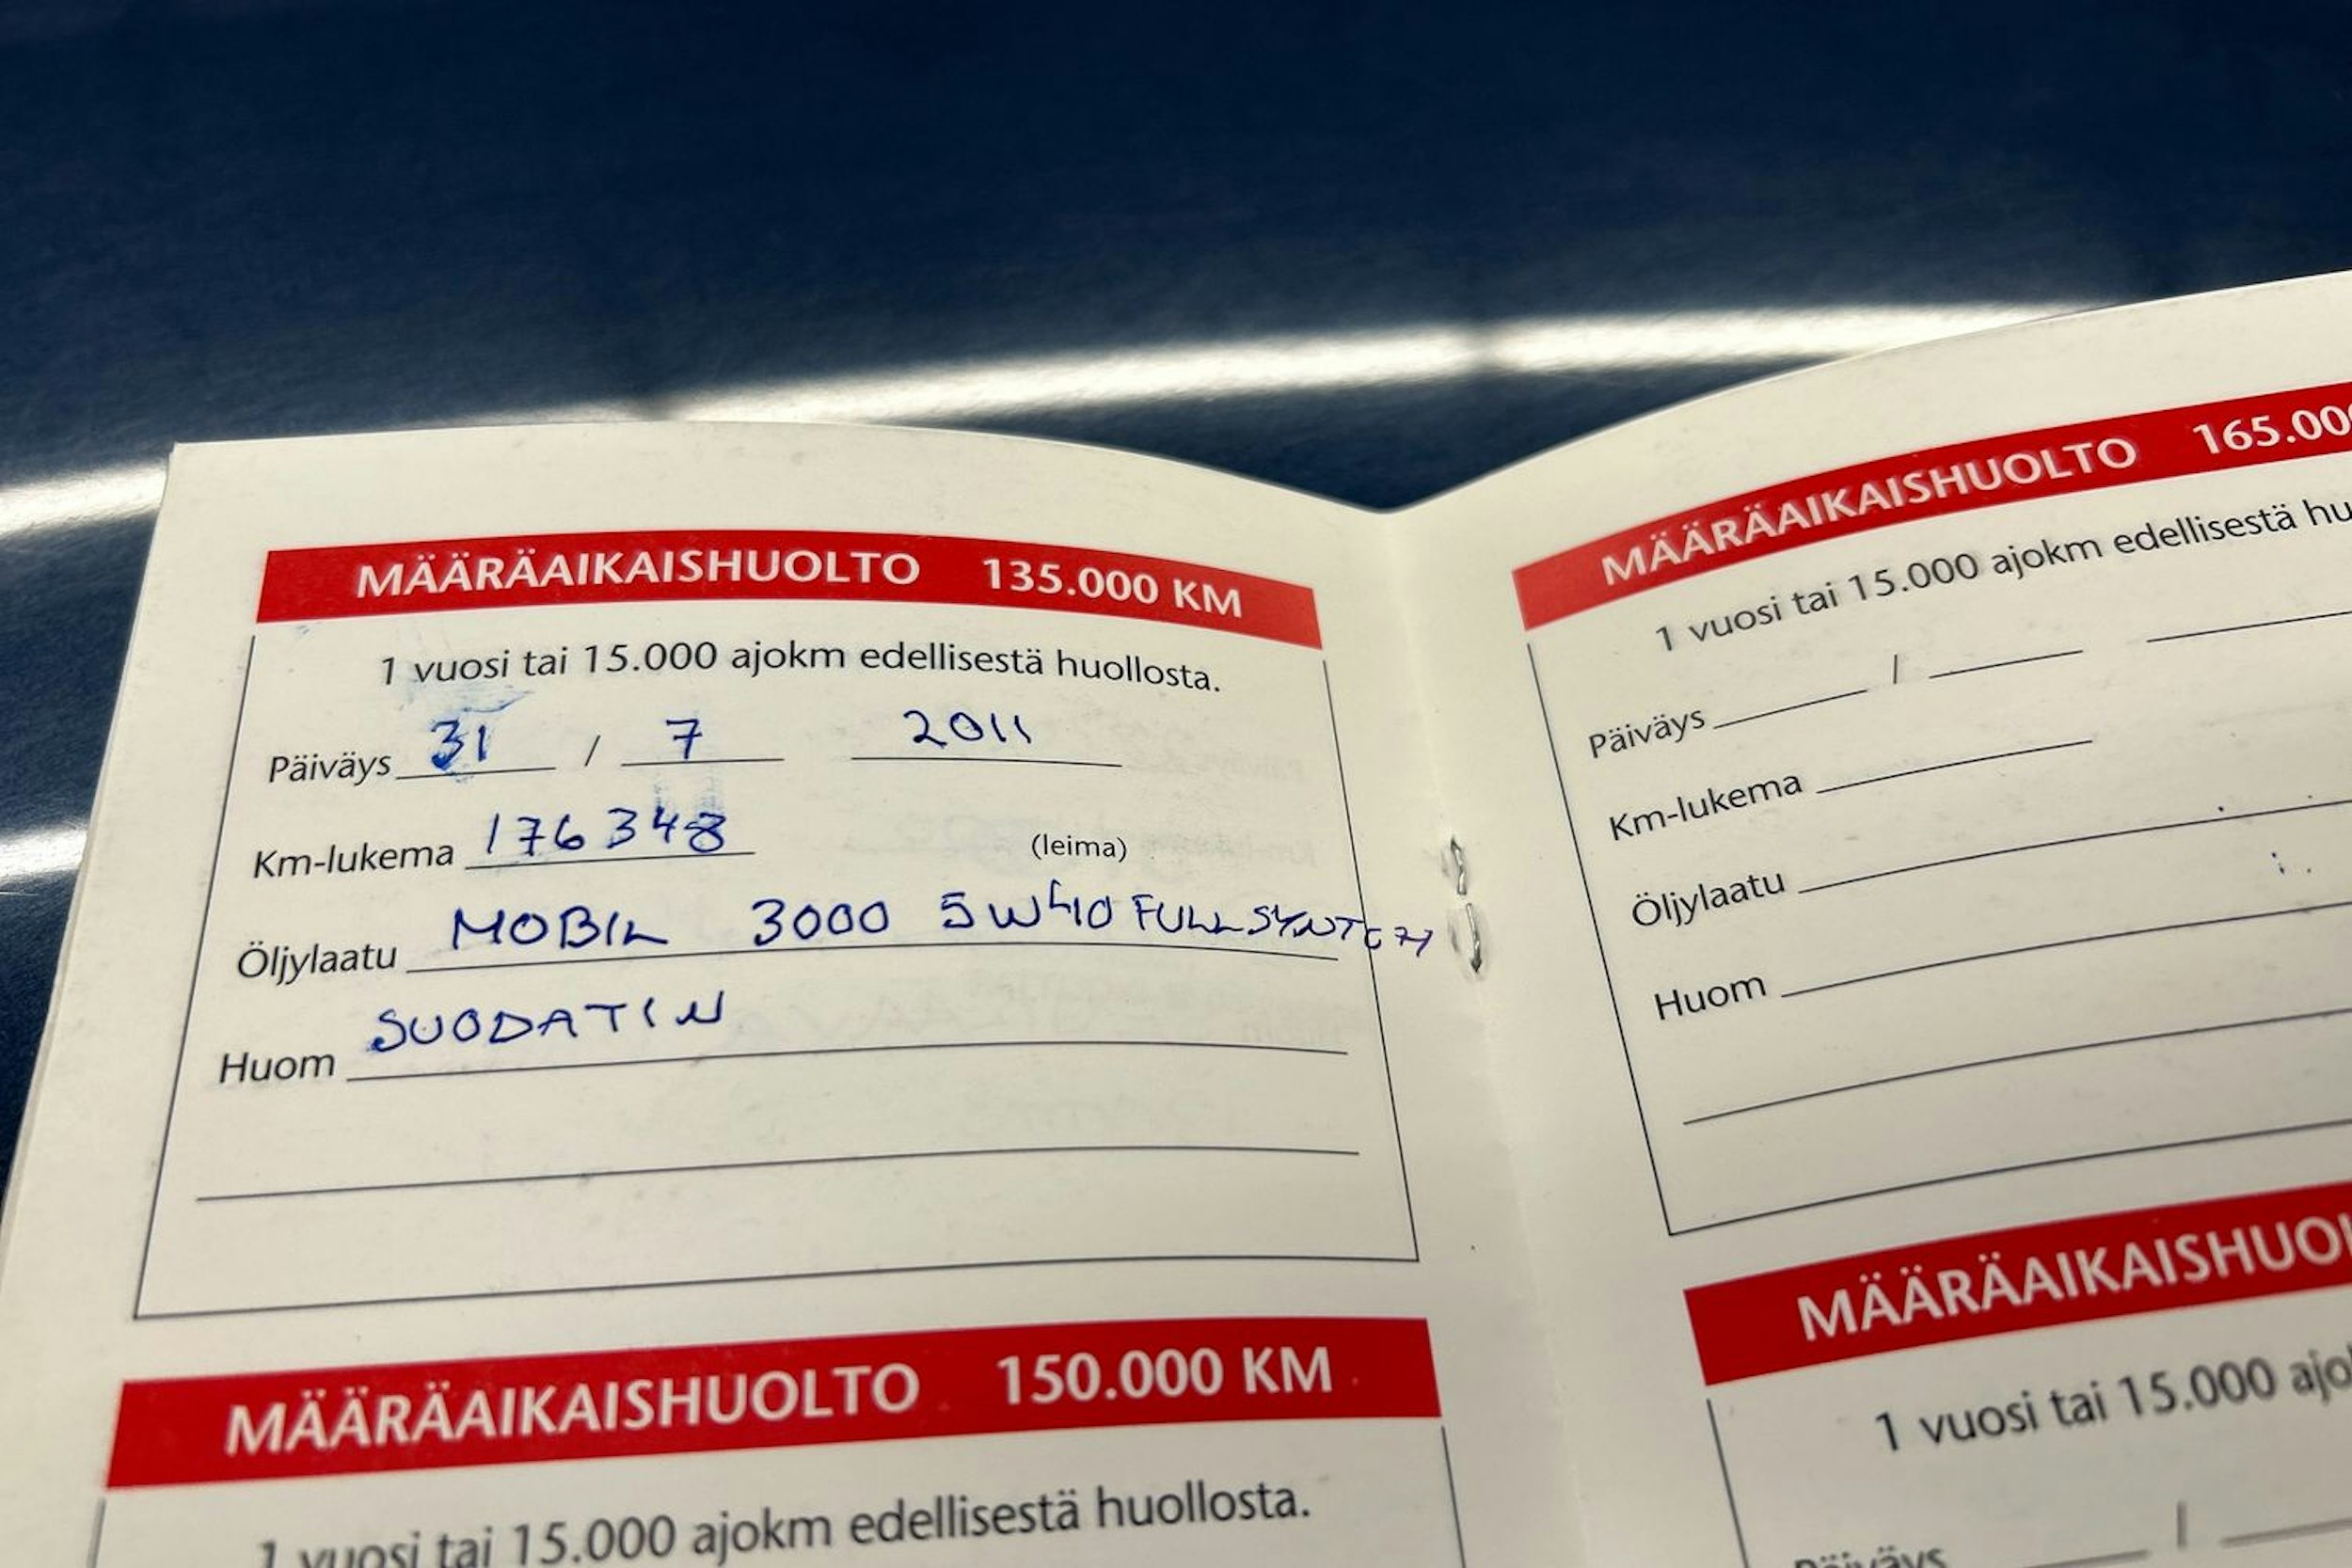 MÄÄRÄAIKAISHUOLTO 135.000 KM
1 vuosi tai 15.000 ajokm edellisestä huollosta.
Päiväys 31 / 7 2011
Km-lukema 176348 (leima)
Öljylaatu MOBIL 3000 5W40 FULLSYNT
Huom SUODATIN
MÄÄRÄAIKAISHUOLTO 150.000 KM
1 vuosi tai 15.000 ajokm edellisestä huollosta.
MÄÄRÄAIKAISHUOLTO 165.00
1 vuosi tai 15.000 ajokm edellisestä hu
Päiväys /
Km-lukema
Öljylaatu
Huom
MÄÄRÄAIKAISHUOL
1 vuosi tai 15.000 ajo
Päiväys /